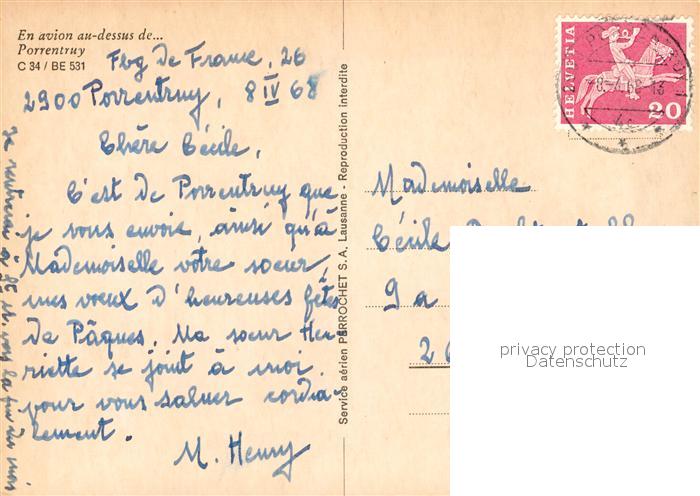 En avion au-dessus de...
Porrentruy
C 34 / BE 531
Fbg De France, 26
2900 Porrentruy, 8 IV 68
Chère Cécile,
C'est de Porrentruy que
je vous envoie, ainsi qu'à
Mademoiselle votre soeur,
mes voeux d'heureuses fêtes
de Pâques. Ma soeur Hen
riette se joint à moi
pour vous saluer cordia-
lement.
M. Henry
Je rentrerai à vers la fin du mois
Service aérien PERROCHET S.A. Lausanne - Reproduction interdite
HELVETIA
20
Mademoiselle
Cécile
privacy protection
Datenschutz